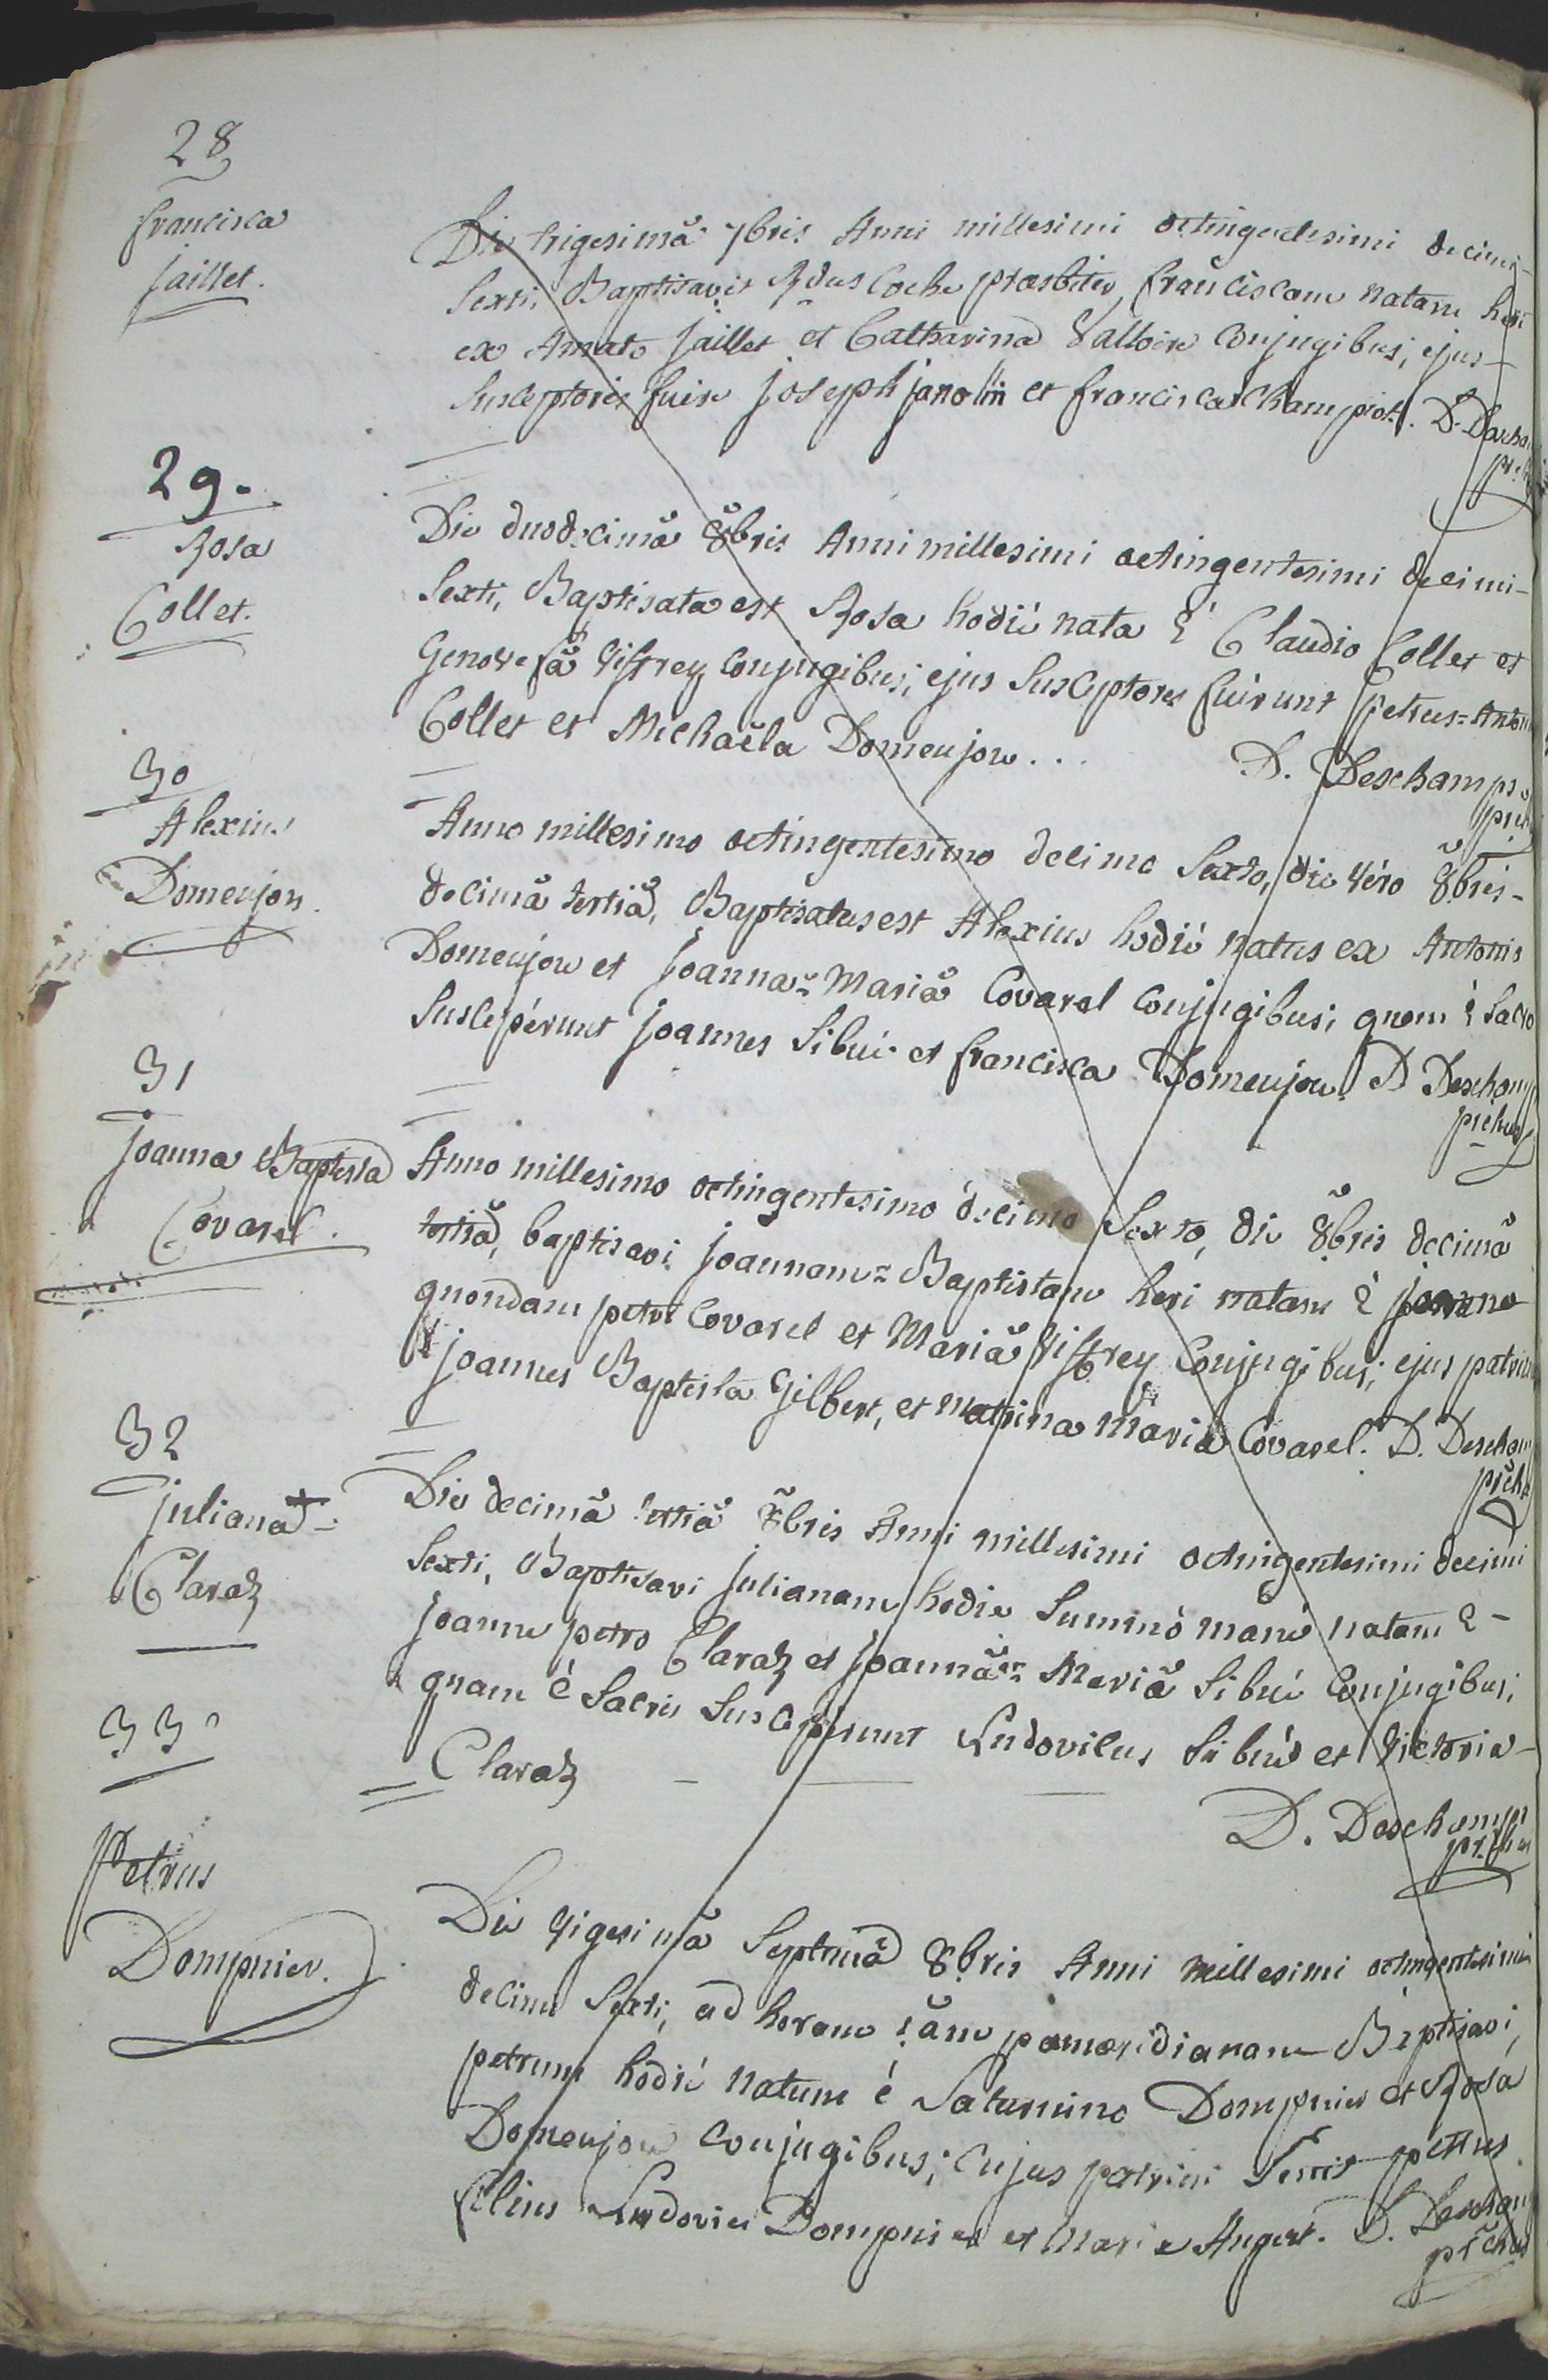 28
francisca
jaillet.
Die trigesimâ 7bris Anni millesimi octingentesimi decimi-
sexti, Baptisavit Rdus Coche præsbiter, franciscam natam heri
ex Amato jaillet et Catharina conjugibus; ejus-
susceptores fuire joseph janolin et francisca Champiot. D. Decha
29.
Rosa
Collet.
Die duodecimâ 8bris Anni millesimi octingentesimi decimi-
sexti, Baptisata est Rosa hodiè nata è Claudio Collet et
Genovefâ Viffrey conjugibus; ejus susceptores fuèrunt petrus=Anton
Collet et Michaëla Domenjou...
D. Deschamps
30
Alexius
Domenjon.
Anno millesimo octingentesimo decimo sexto, die vèro 8bris-
decimâ tertiâ, Baptisatus est Alexius hodiè natus ex Antonio
Domenjou et joanna=Mariâ Covarel conjugibus; quem è sacro
suscepérunt joannes Sibué et francisca Domenjou. D Deschamp
31
joanna Baptista
Covarel.
Anno millesimo octingentesimo decimo sexto, die 8bris decimâ
tertiâ, baptisavi joannam=Baptistam heri natam è joanne
quondam petri Covarel et Mariâ Viffrey conjugibus; ejus patrinus
joannes Baptista Gilbert, et Matrina Maria Covarel. D. Descham
32
juliana-
Claraz
Die decimâ tertiâ 8bris Anni millesimi octingentesimi decimi
sexti, Baptisavi julianam hodie summò manè natam è-
joanne petro Claraz et joannâ=Mariâ Sibué conjugibus;
quam è sacris susceperunt Ludovicus Sibué et Victoria-
Claraz
D. Deschamps
33
Petrus
Dompnier.
Die vigesimâ septimâ 8bris Anni millesimi octingentesimi
decimi sexti, ad horam pomæridianam Baptisavi,
petrum hodiè natum è Saturnino Dompnier et Rosâ
Domenjou conjugibus; cujus patrini petrus
filius Ludovici Dompnier et Marie Angert. D. Descham